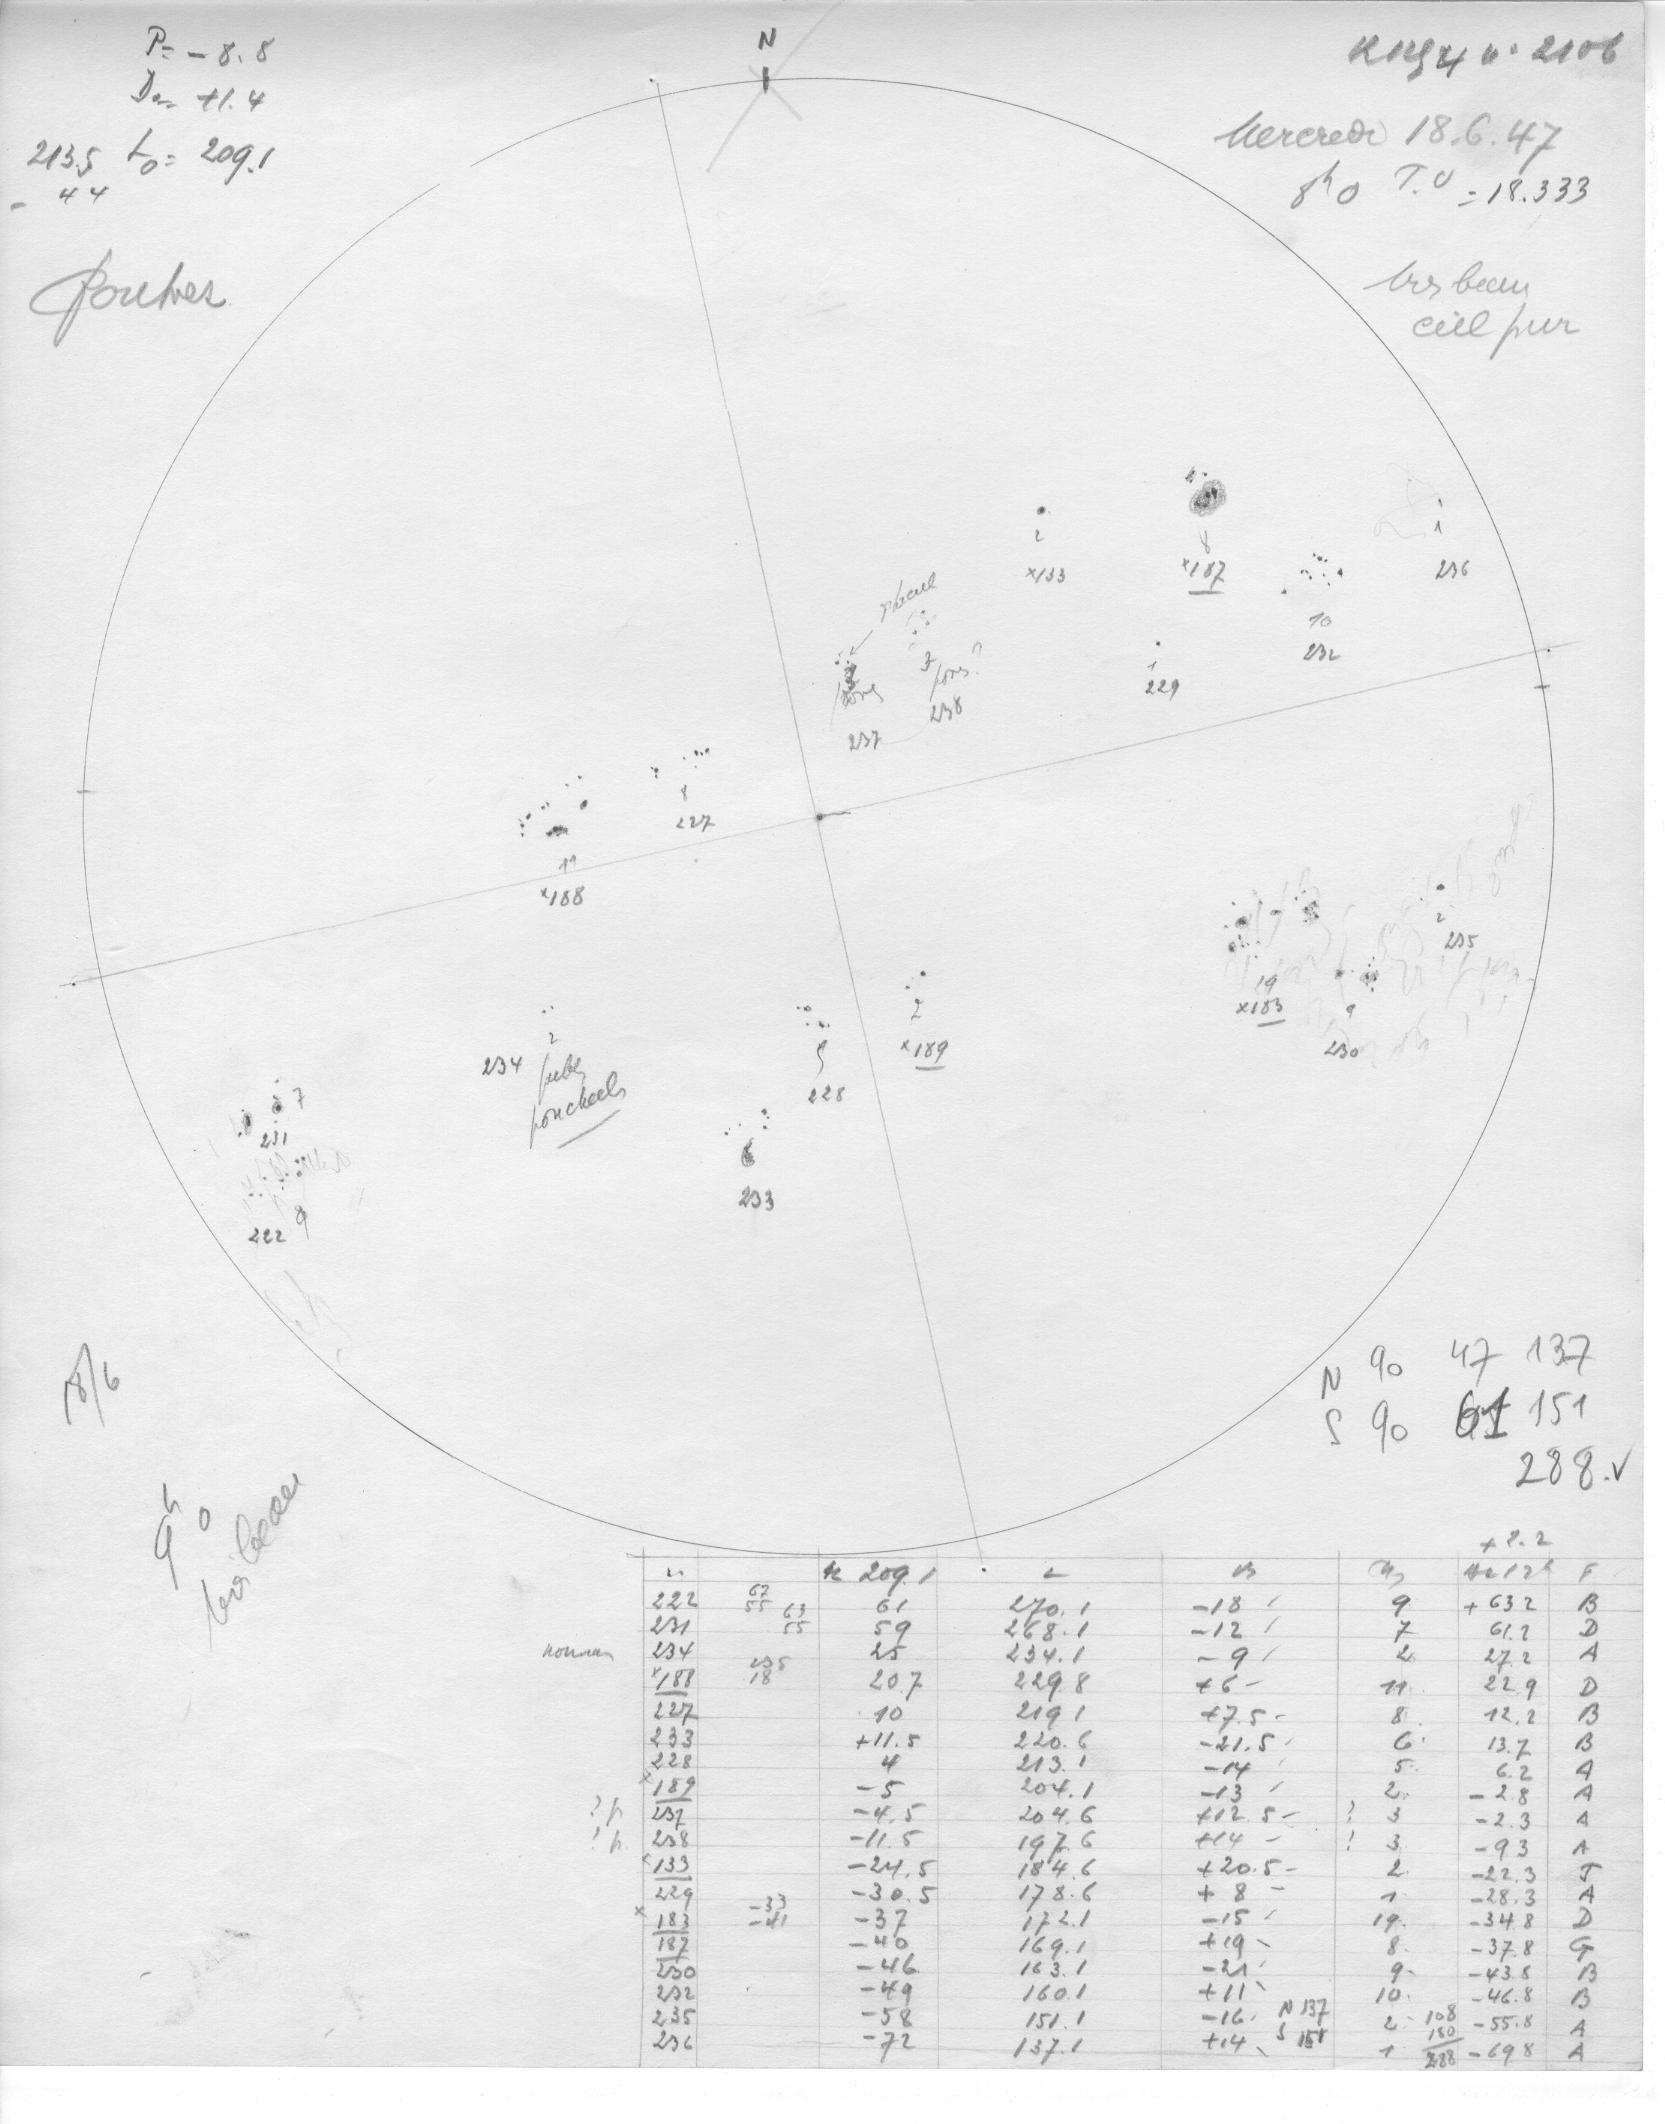 P= -8.8
N
n° 2106
D= +1.4
Mercredi 18.6.47
213.5 L0= 209.1
- 44
8h0 T.U =18.333
très beau
ciel pur
2
x133
8
x187
1
236
10
232
3
pores?
238
pores
237
1
229
8
227
11
x188
2
235
19
x183
9
230
2
x189
234
2
5
228
6
233
7
231
9
222
18/6
N 90 47 137
S 90 61 151
288.✓
9h0
très beau
+2.2
209.1 L B F
222 67 55 61 270.1 -18 9 +63.2 B
231 63 55 59 268.1 -12 7 61.2 D
nouveau 234 25 234.1 -9 2 27.2 A
x188 18 20.7 229.8 +6 11 22.9 D
227 10 219.1 +7.5 8 12.2 B
233 +11.5 220.6 -21.5 6 13.7 B
228 4 213.1 -14 5 6.2 A
x189 -5 204.1 -13 2 -2.8 A
? p 237 -4.5 204.6 +12.5 ? 3 -2.3 A
? p. 238 -11.5 197.6 +14 ? 3 -9.3 A
x133 -24.5 184.6 +20.5 2 -22.3 J
229 -30.5 178.6 +8 1 -28.3 A
x183 -33 -41 -37 172.1 -15 19 -34.8 D
187 -40 169.1 +19 8 -37.8 G
230 -46 163.1 -21 9 -43.8 B
232 -49 160.1 +11 10 -46.8 B
235 -58 151.1 -16 N 137 2 108 -55.8 A
236 -72 137.1 +14 S 151 1 180 -69.8 A
288